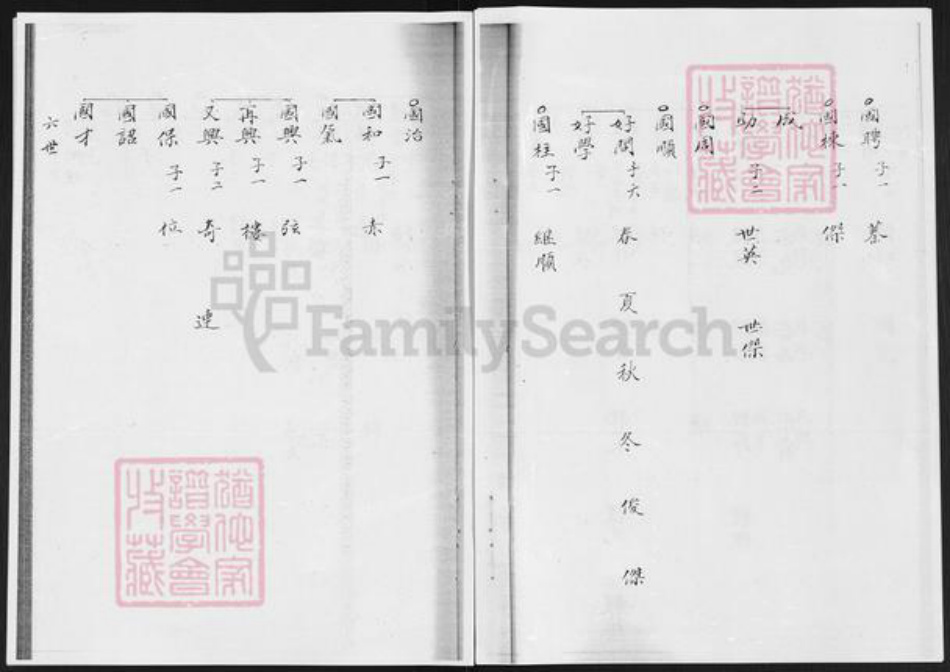 國聘 子一 蓁
國棟 子一 傑
成
功 子二 世英 世傑
國周
國順
好問 子六 春 夏 秋 冬 俊 傑
好學
國柱 子一 繼順
國治
國和 子一 赤
國氣
國興 子一 弦
再興 子一 樓
又興 子二 奇 連
國保 子一 位
國詔
國才
六世
FamilySearch